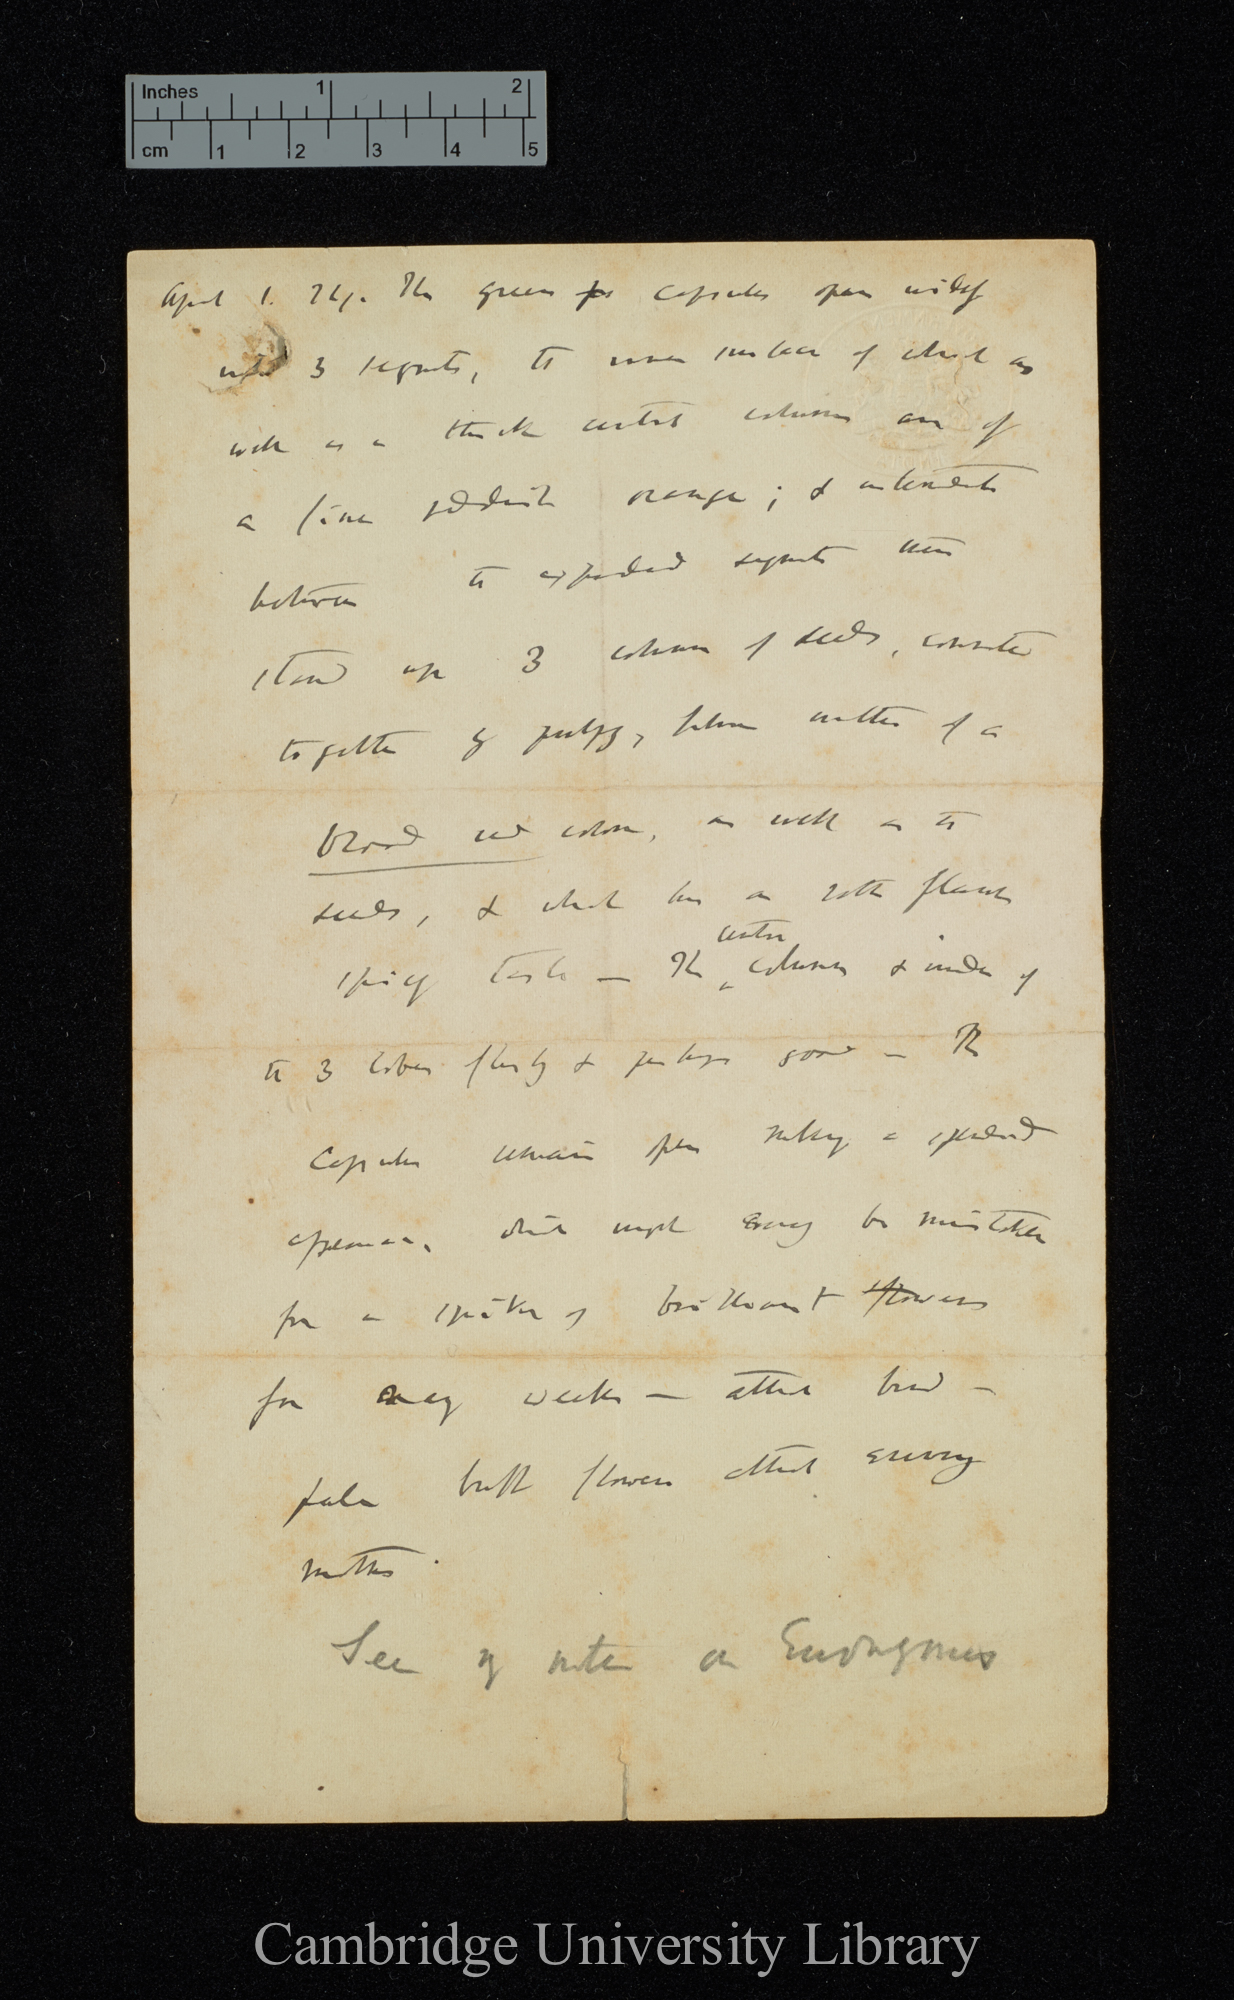 Inches 1 2
cm 1 2 3 4 5
April 1. The green capsules open widely
into 3 segments, the inner surface of which as
well as a thick central column are of
a fine reddish orange; &
between the expanded segments there
stand up 3 column of seeds,
together by pulpy, matter of a
blood red colour, as well as the
seeds, & which has a rather
spicy taste — The centre column & inside of
the 3 lobes fleshy & perhaps good — The
capsules remain open making a splendid
appearance, which might easily be mistaken
for a spike of brilliant flowers
for many weeks — attract birds —
pale buff flowers attract evening
moths.
See my notes on Euonymus
Cambridge University Library